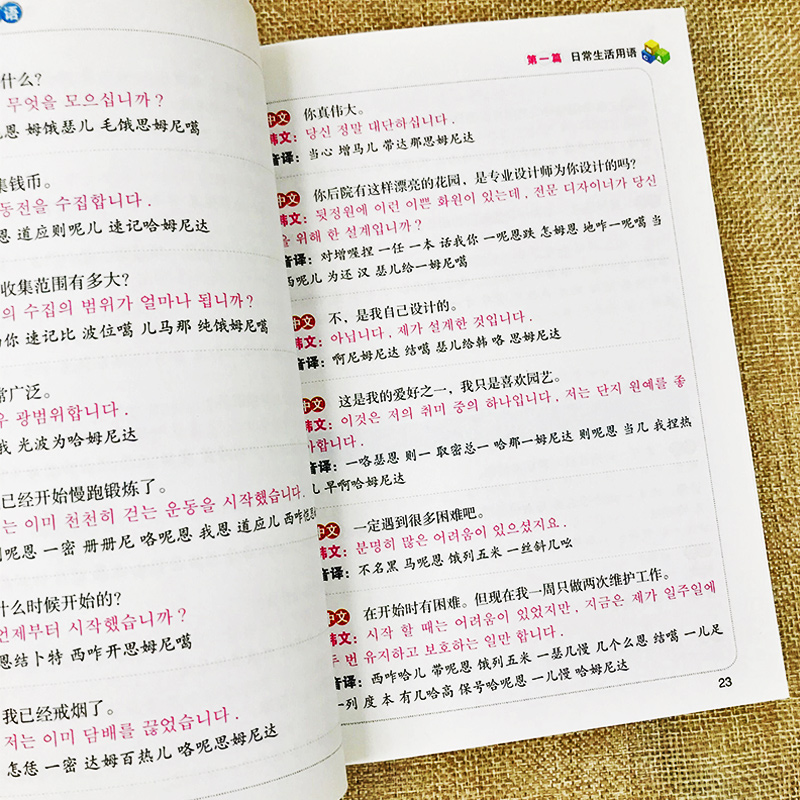 语
什么?
무엇을 모으십니까?
恩 姆饿瑟儿 毛饿思姆尼噶
集钱币。
동전을 수집합니다.
恩 道应则呢儿 速记哈姆尼达
收集范围有多大?
의 수집의 범위가 얼마나 됩니까?
你 速记比 波位噶 儿马那 纯饿姆尼噶
常广泛。
우 광범위합니다.
我 光波为哈姆尼达
已经开始慢跑锻炼了。
는 이미 천천히 걷는 운동을 시작했습니다.
呢恩 一密 册册尼 咯呢恩 我恩 道应儿 西咋
什么时候开始的?
언제부터 시작했습니까?
恩结卜特 西咋开思姆尼噶
我已经戒烟了。
저는 이미 담배를 끊었습니다.
怎恁 一密 达姆百热儿 咯呢思姆尼达
第一篇 日常生活用语
中文 你真伟大。
韩文: 당신 정말 대단하십니다.
音译: 当心 增马儿 带达那思姆尼达
中文 你后院有这样漂亮的花园，是专业设计师为你设计的吗?
韩文: 뒷정원에 이런 이쁜 화원이 있는데, 전문 디자이너가 당신
을 위해 한 설계입니까?
音译: 对增喔捏 一任 一本 话我你 一呢恩跌 怎姆恩 地咋一呢噶 当
西呢儿 为还 汉 瑟儿给一姆尼噶
中文 不，是我自己设计的。
韩文: 아닙니다, 제가 설계한 것입니다.
音译: 啊尼姆尼达 结噶 瑟儿给韩 咯 思姆尼达
中文 这是我的爱好之一，我只是喜欢园艺。
韩文: 이것은 저의 취미 중의 하나입니다, 저는 단지 원예를 좋
아합니다.
音译: 一咯瑟恩 则一 取密总一 哈那一姆尼达 则呢恩 当几 我捏热
儿 早啊哈姆尼达
中文 一定遇到很多困难吧。
韩文: 분명히 많은 어려움이 있으셨지요.
音译: 不名黑 马呢恩 饿列五米 一丝斜几吆
中文 在开始时有困难。但现在我一周只做两次维护工作。
韩文: 시작 할 때는 어려움이 있었지만, 지금은 제가 일주일에
두 번 유지하고 보호하는 일만 합니다.
音译: 西咋哈儿 带呢恩 饿列五米 一瑟儿慢 几个么恩 结噶 一儿足
一列 度 本 有几哈高 保号哈呢恩 一儿慢 哈姆尼达
23